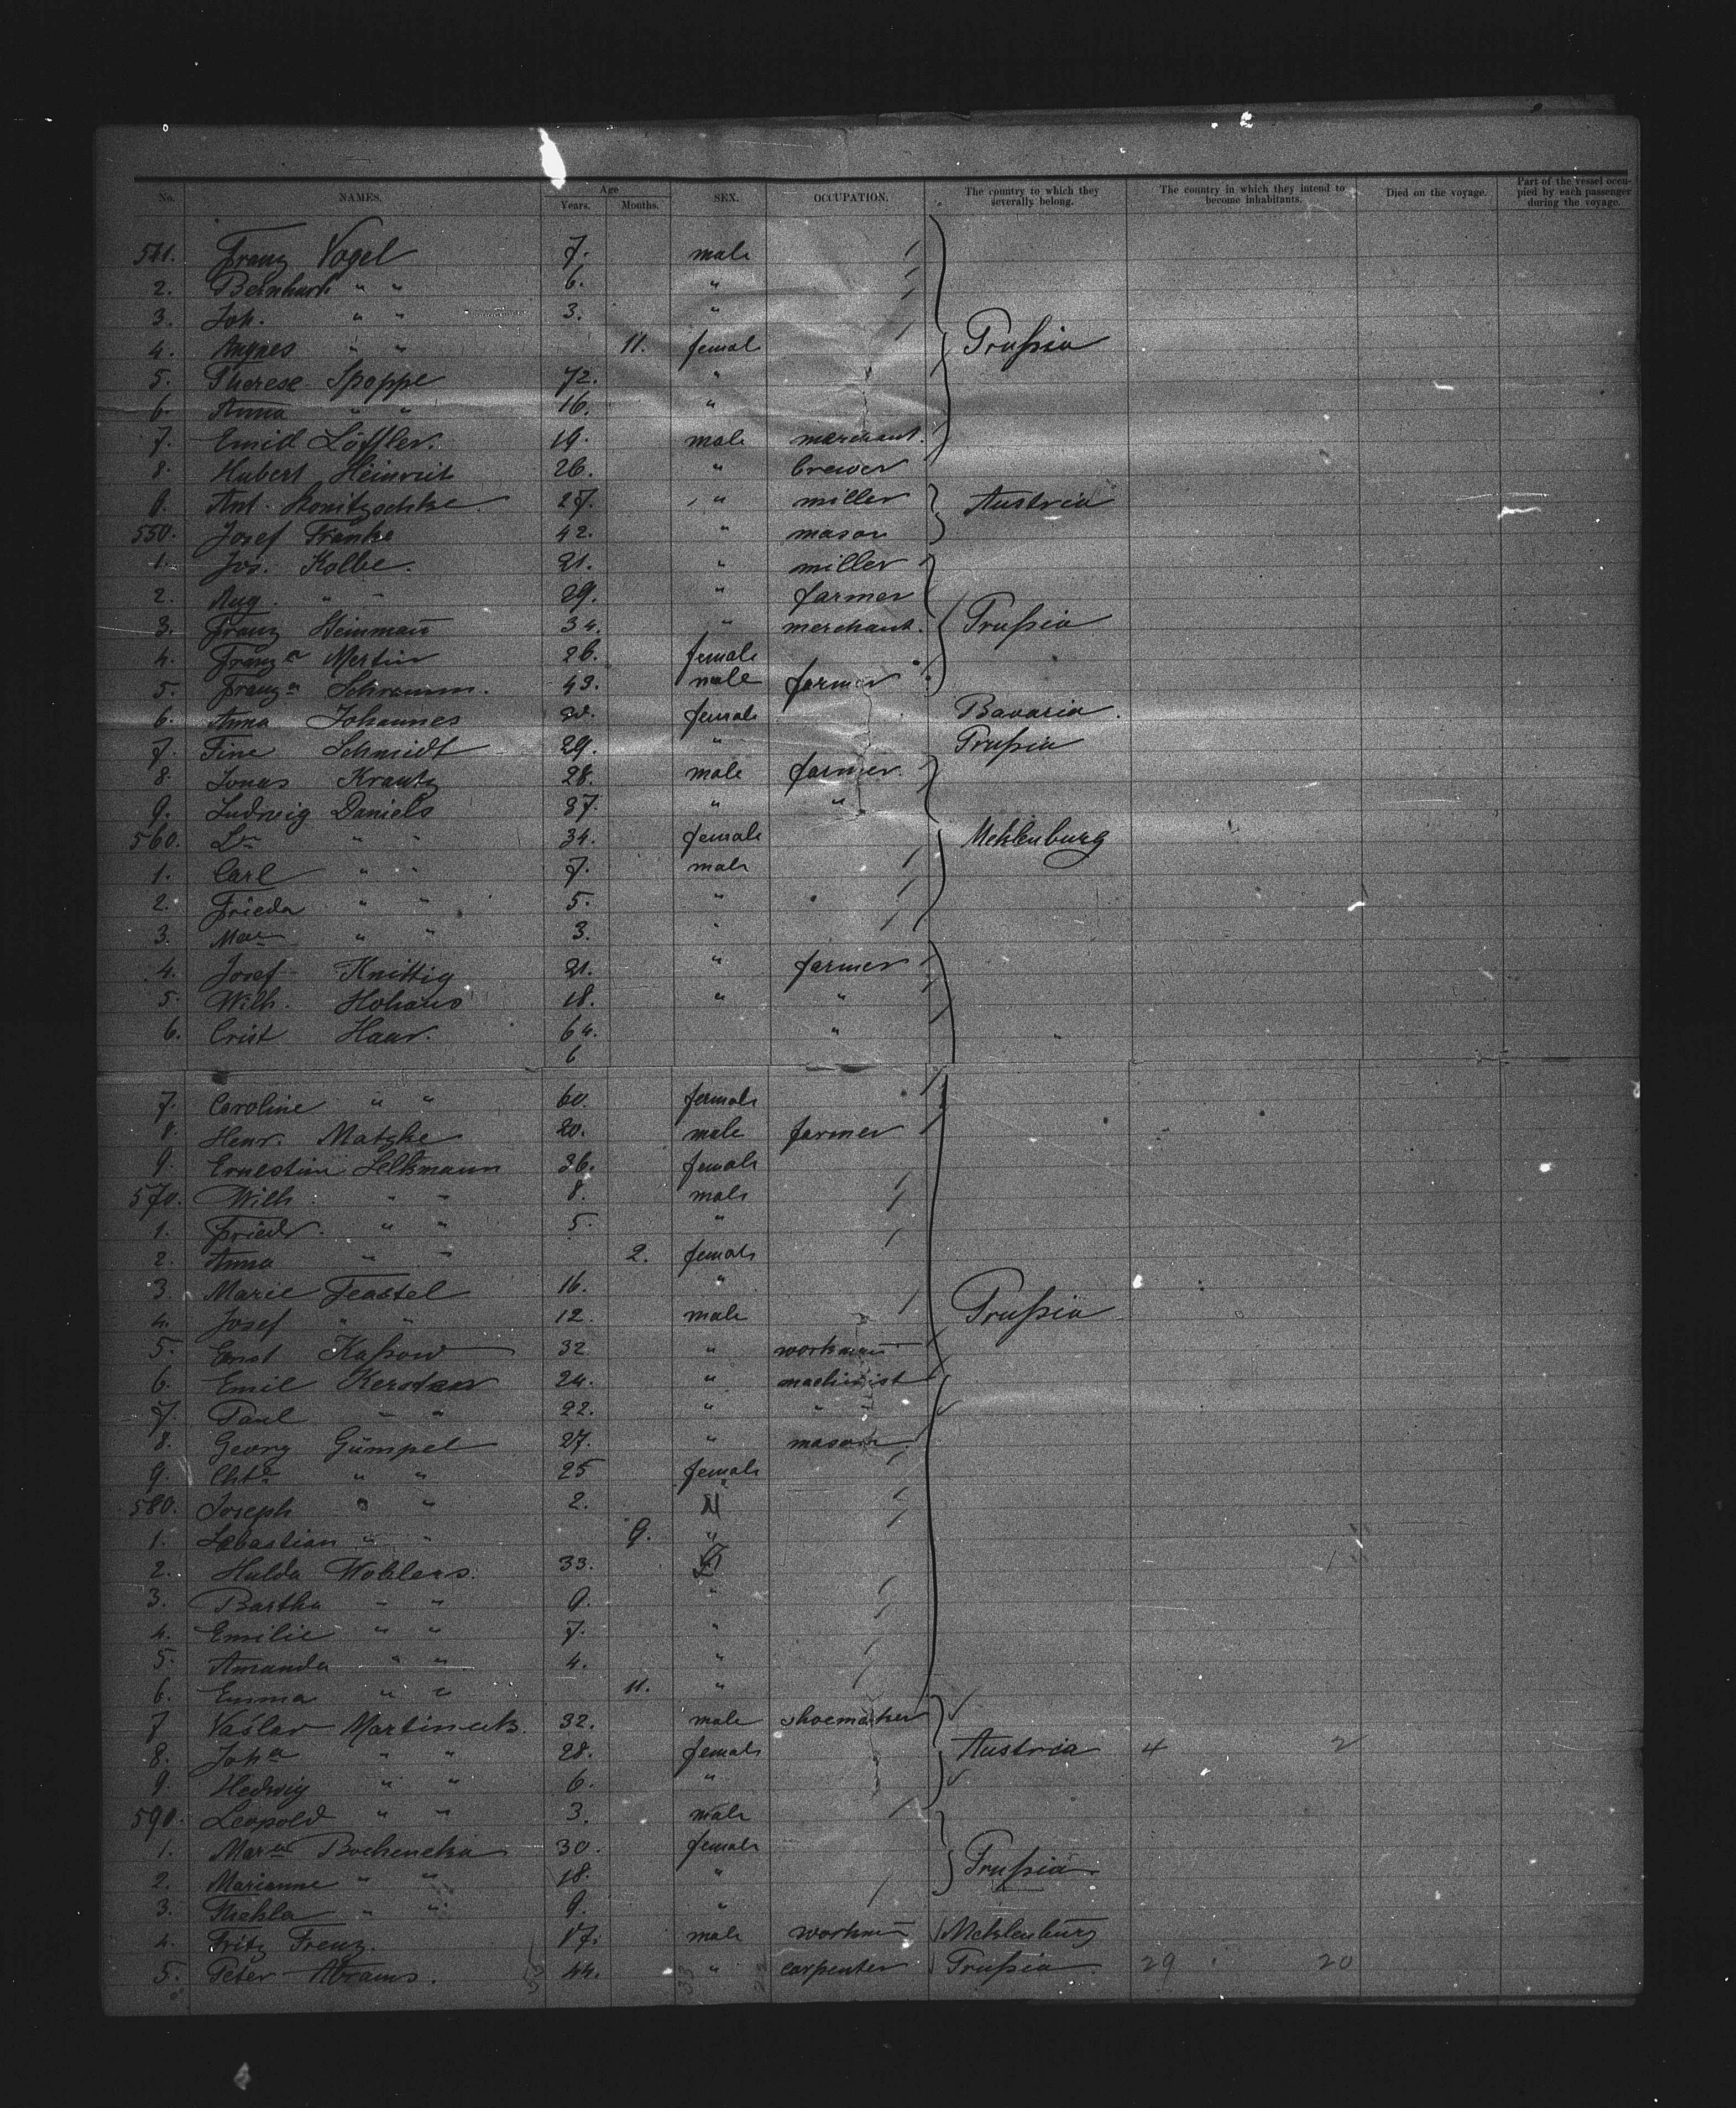 No. NAMES. Age Years. Months. SEX. OCCUPATION. The country to which they severally belong. The country in which they intend to become inhabitants. Died on the voyage. Part of the vessel occupied by each passenger during the voyage.
541. Franz Vogel 7. male
2. Bernhard " " 6. "
3. Joh. " " 3. "
4. Angnes " " 11. femal Prußia
5. Therese Spoppe 72. "
6. Anna " " 16. "
7. Emid Löffler. 19. male merchant.
8. Hubert Heinrich 26. " brewer
9. Ant. 27. " miller Austria
550. Josef Franke 42. " mason
1. Jos. Kolbe. 21. " miller
2. Aug. " " 29. " farmer
3. Franz Heinmañ 34. " merchant. Prußia
4. Franza Mertin 26. female
5. Franza Schramm. 43. male farmer
6. Anna Johannes female Bavaria.
7. Fine Schmidt 29. " Prußia
8. Jonas Krantz 28. male farmer.
9. Ludwig Daniels 37. " "
560. " " 34. female Meklenburg
1. Carl " " 7. male
2. Frieda " " 5. "
3. " " 3. "
4. Josef Knittig 21. " farmer
5. Wilh. Hohans 18. " "
6. Crist Haar. 64. "
6
7. Caroline " " 60. female
8. Henr. Matzke 20. male farmer
9. Ernestine Selkmann 36. female
570. Wilh. " " 8. male
1. Friedr. " " 5. "
2. Anna " " 2. female
3. Marie Feastel 16. "
4. Josef " " 12. male Prußia
5. Ernst Kaßow 32 " workmañ
6. Emil Kersten 24. " machinist
7. Paul " " 22. " "
8. Georg Gümpel 27. " mason.
9. " " 25 female
580. Joseph " " 2. M
1. Sebastian " " 9. "
2. Hulda Wohlers. 33. F
3. Bartha " " 9. "
4. Emilie " " 7. "
5. Amanda " " 4. "
6. Emma " " 11. "
7 Vaślav Martineck. 32. male shoemaker
8. Joha " " 28. female Austria 4 2
9. Hedwig " " 6. "
590. Leopold " " 3. male
1. Mara Bochencka 30. female
2. Marianne " " 18. " Prußia
3. Thekla " " 9. "
4. Fritz Frenz. 17. male workmñ Meklenburg
5. Peter Abrams. 44. " carpenter Prußia 29 20
33